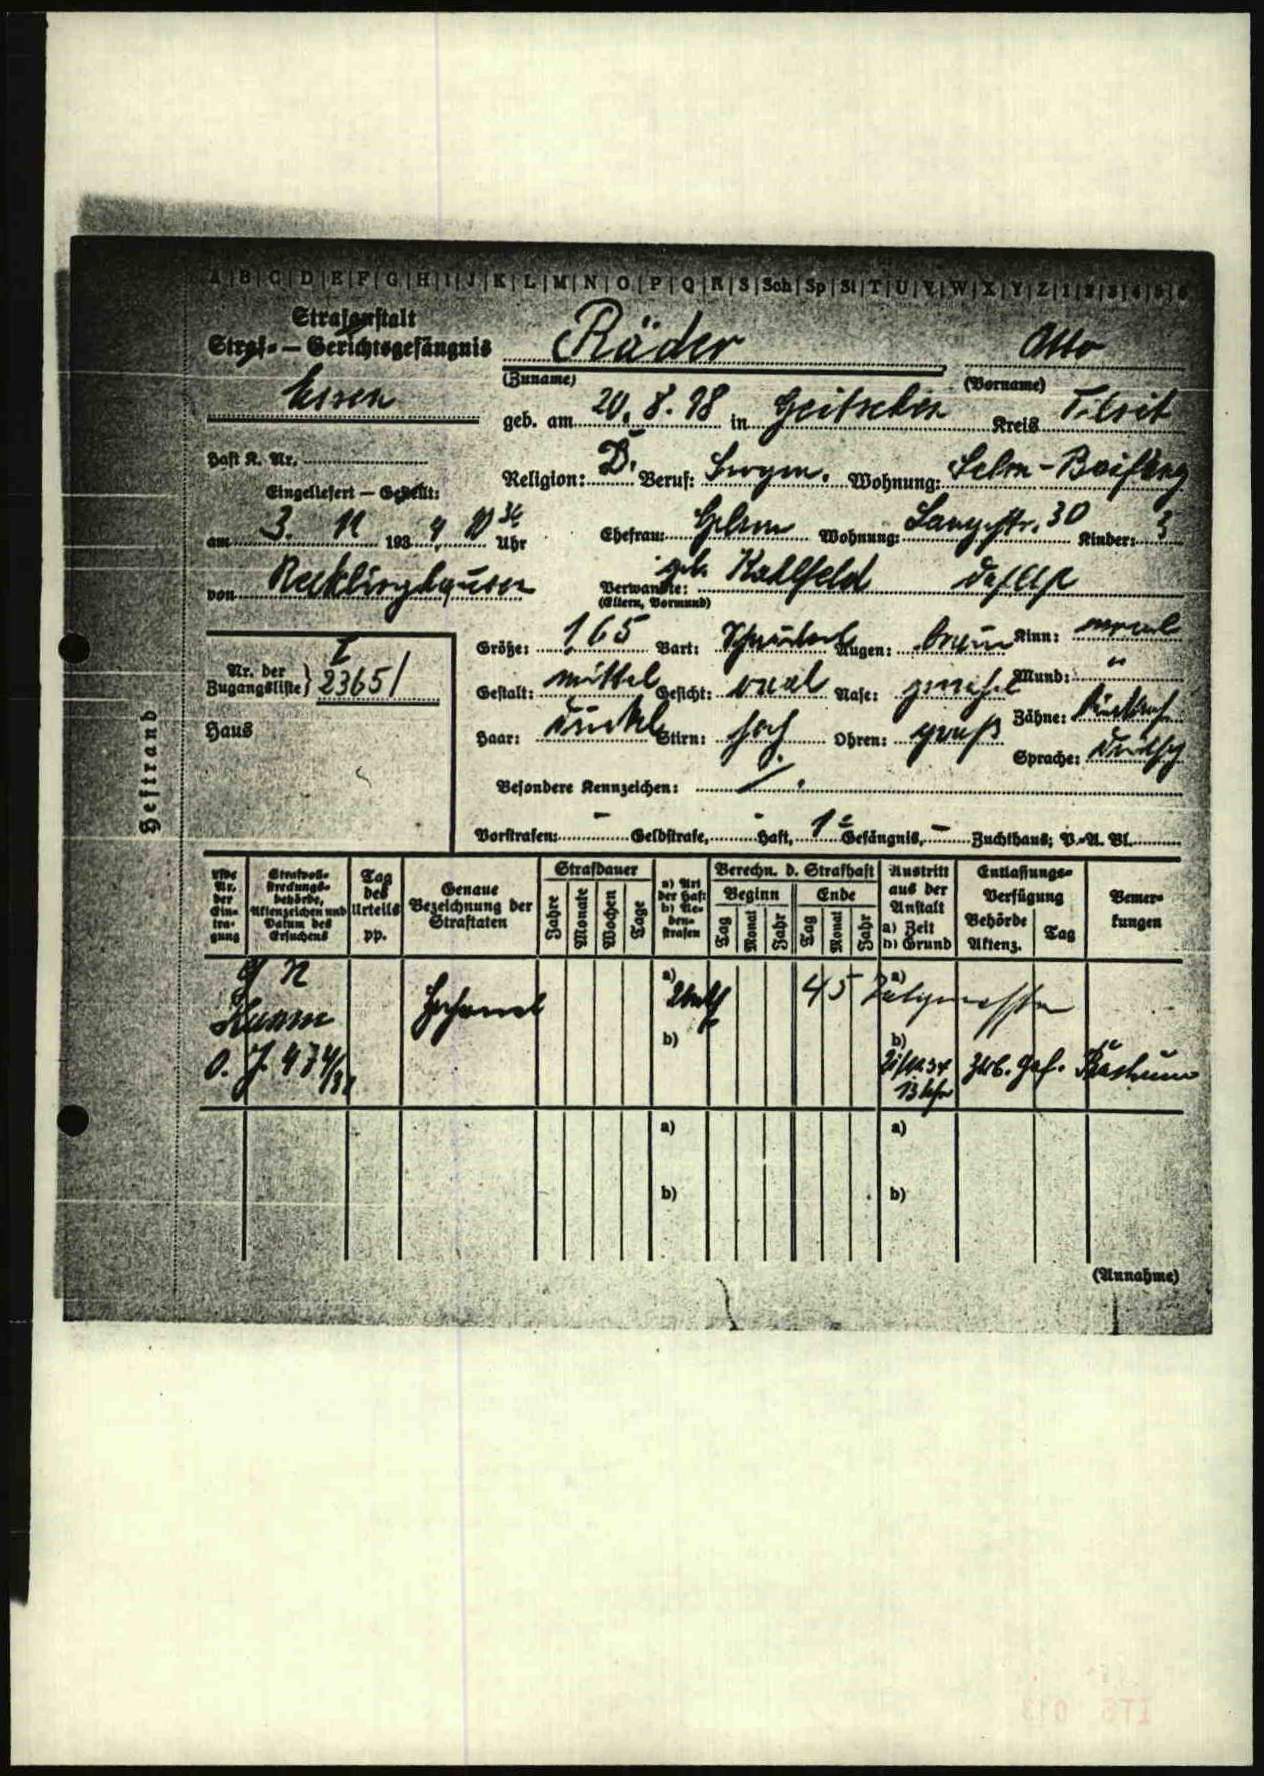 A|B|C|D|E|F|G|H|I|J|K|L|M|N|O|P|Q|R|S|Sch|Sp|St|T|U|V|W|X|Y|Z|1|2|3|4|5|6
Strafanstalt
Straf- — Gerichtsgefängnis
Essen
Räder
Otto
(Zuname)
(Vorname)
geb. am 20. 8. 98 in Kreis Tilsit
Haft K. Nr.
Religion: D. Beruf: Wohnung: Selm-Beifang
Eingeliefert — Gestellt:
am 3. 11 1934 10 30 Uhr
Ehefrau: Wohnung: Langestr. 30 Kinder: 3
von Recklinghausen
Verwandte: geb. Kahlfeld
(Eltern, Vormund)
Größe: 165 Bart: Augen: braun Kinn: normal
Nr. der Zugangsliste I 23651
Gestalt: mittel Gesicht: oval Nase: Mund: "
Haus
Haar: dunkel Stirn: hoch Ohren: groß Zähne:
Sprache: deutsch
Besondere Kennzeichen: /.
Vorstrafen: – Geldstrafe, – Haft, 1 Gefängnis, – Zuchthaus; V.-A. Bl.
Heftrand
Lfde Nr. der Eintragung
Strafvollstreckungsbehörde, Aktenzeichen und Datum des Ersuchens
Tag des Urteils pp.
Genaue Bezeichnung der Straftaten
Strafdauer
Jahre
Monate
Wochen
Tage
a) Art der Haft
b) Nebenstrafen
Berechn. d. Strafhaft
Beginn
Ende
Tag
Monat
Jahr
Tag
Monat
Jahr
Austritt aus der Anstalt
a) Zeit
b) Grund
Entlassungs-Verfügung
Behörde Aktenz.
Tag
Bemerkungen
Hamm
O. J. 474/34
Hochverrat
a)
b)
4 5
a)
b)
13 Uhr
Ger. Gef. Bochum
a)
b)
a)
b)
(Annahme)
ITS 013